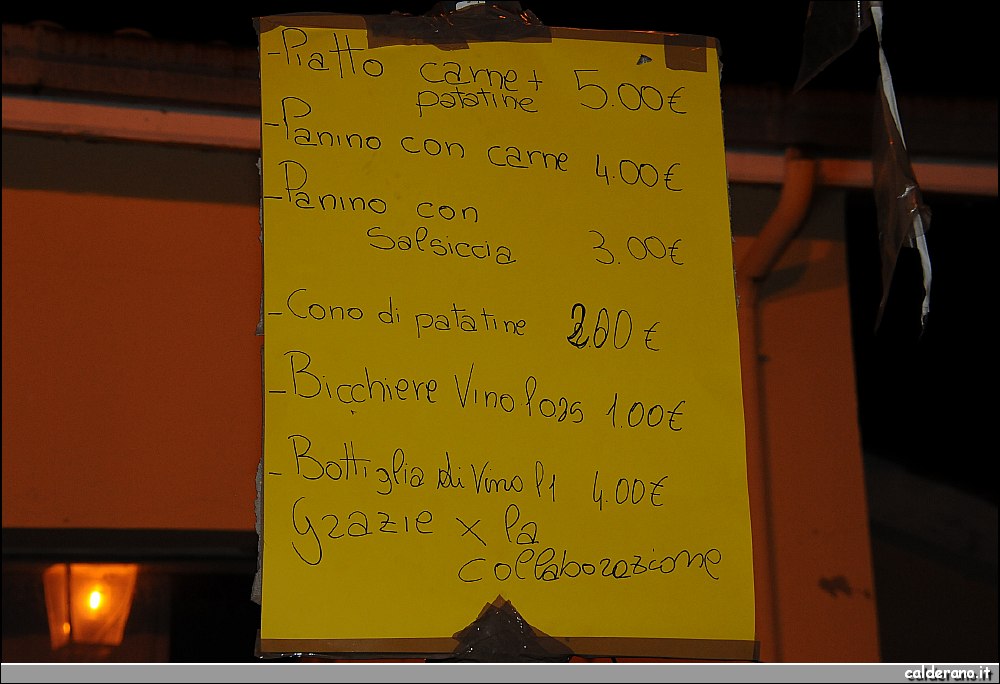 - Piatto carne + 5.00€
patatine
- Panino con carne 4.00€
- Panino con
Salsiccia 3.00€
- Cono di patatine 2.00€
- Bicchiere Vino l 025 1.00€
- Bottiglia di Vino l 1 4.00€
Grazie x la
collaborazione
calderano.it